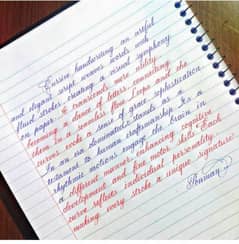 Cursive handwriting, an artful
and elegant script, weaves words with
fluid strokes, creating a visual symphony
on paper. It transcends mere utility,
becoming a dance of letters, connecting
them in a seamless flow. Loops and
curves evoke a sense of grace, sophistication
In an era dominated stands as a
testament to human craftsmanship. Its
rhythmic motions engage the brain in
a different manner, enhancing cognitive
development and fine motor skills. Each
curve reflects individual personality,
making every stroke a unique signature